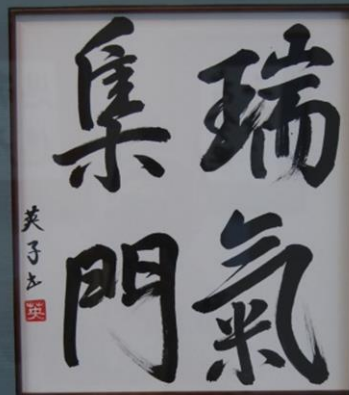 瑞氣
集門
英子书
英